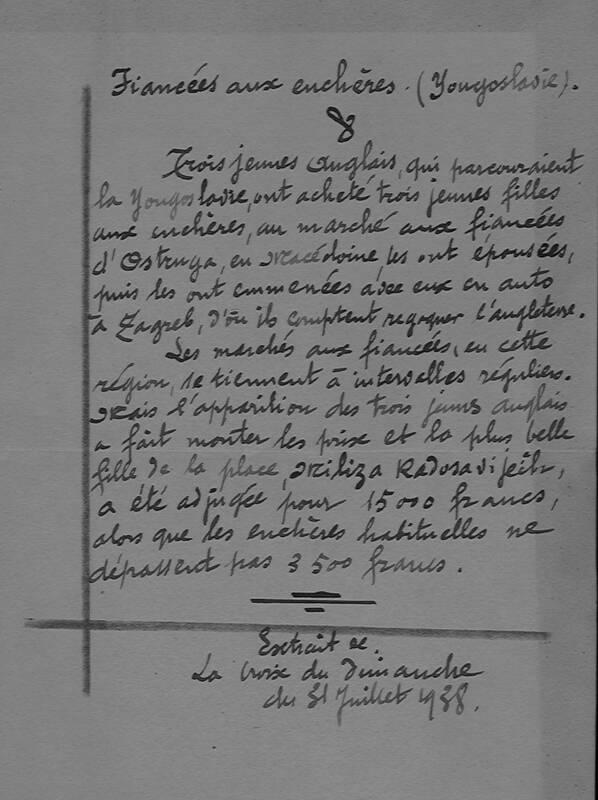 Fiancées aux enchères. (Yougoslavie).
Trois jeunes Anglais, qui parcouraient
la Yougoslavie, ont acheté trois jeunes filles
aux enchères, au marché aux fiancées
d'Ostruga, en Macédoine, les ont épousées,
puis les ont emmenées avec eux en auto
à Zagreb, d'où ils comptent regagner l'Angleterre.
Les marchés aux fiancées, en cette
région, se tiennent à intervalles réguliers.
Mais l'apparition des trois jeunes anglais
a fait monter les prix et la plus belle
fille de la place, Miliza Radosavijeih,
a été adjugée pour 15000 francs,
alors que les enchères habituelles ne
dépassent pas 3500 francs.
Extrait de.
La Croix du Dimanche
du 31 Juillet 1938.